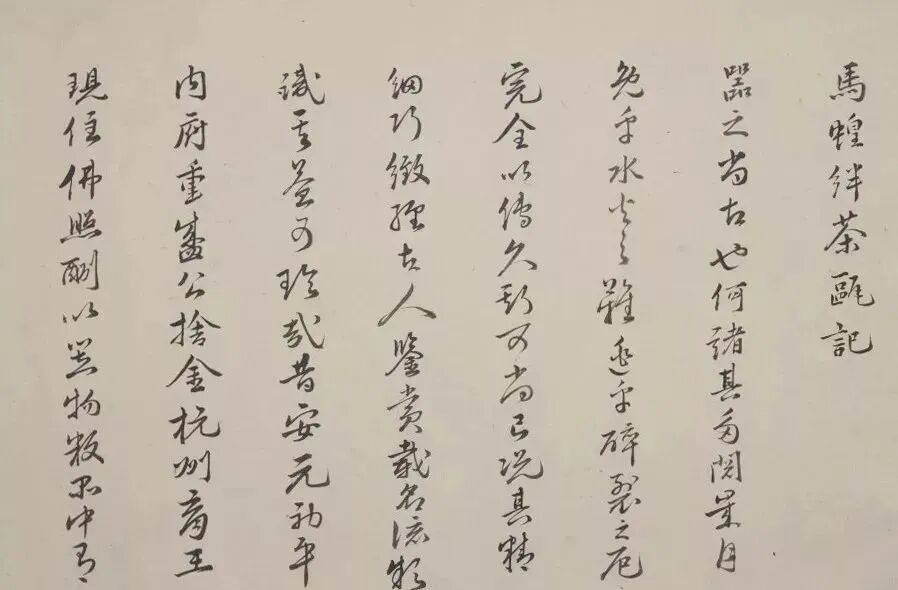 馬蝗絆茶甌記
器之尚古也何諸其多閱歲月
免乎水火之難逃乎碎裂之厄
完全以傳久斯可尚已况其精
細巧緻經古人鑒賞載名流
識其益可珍哉昔安元初平
内府重盛公捨金杭州育王
現住佛照酬以器物数品中有